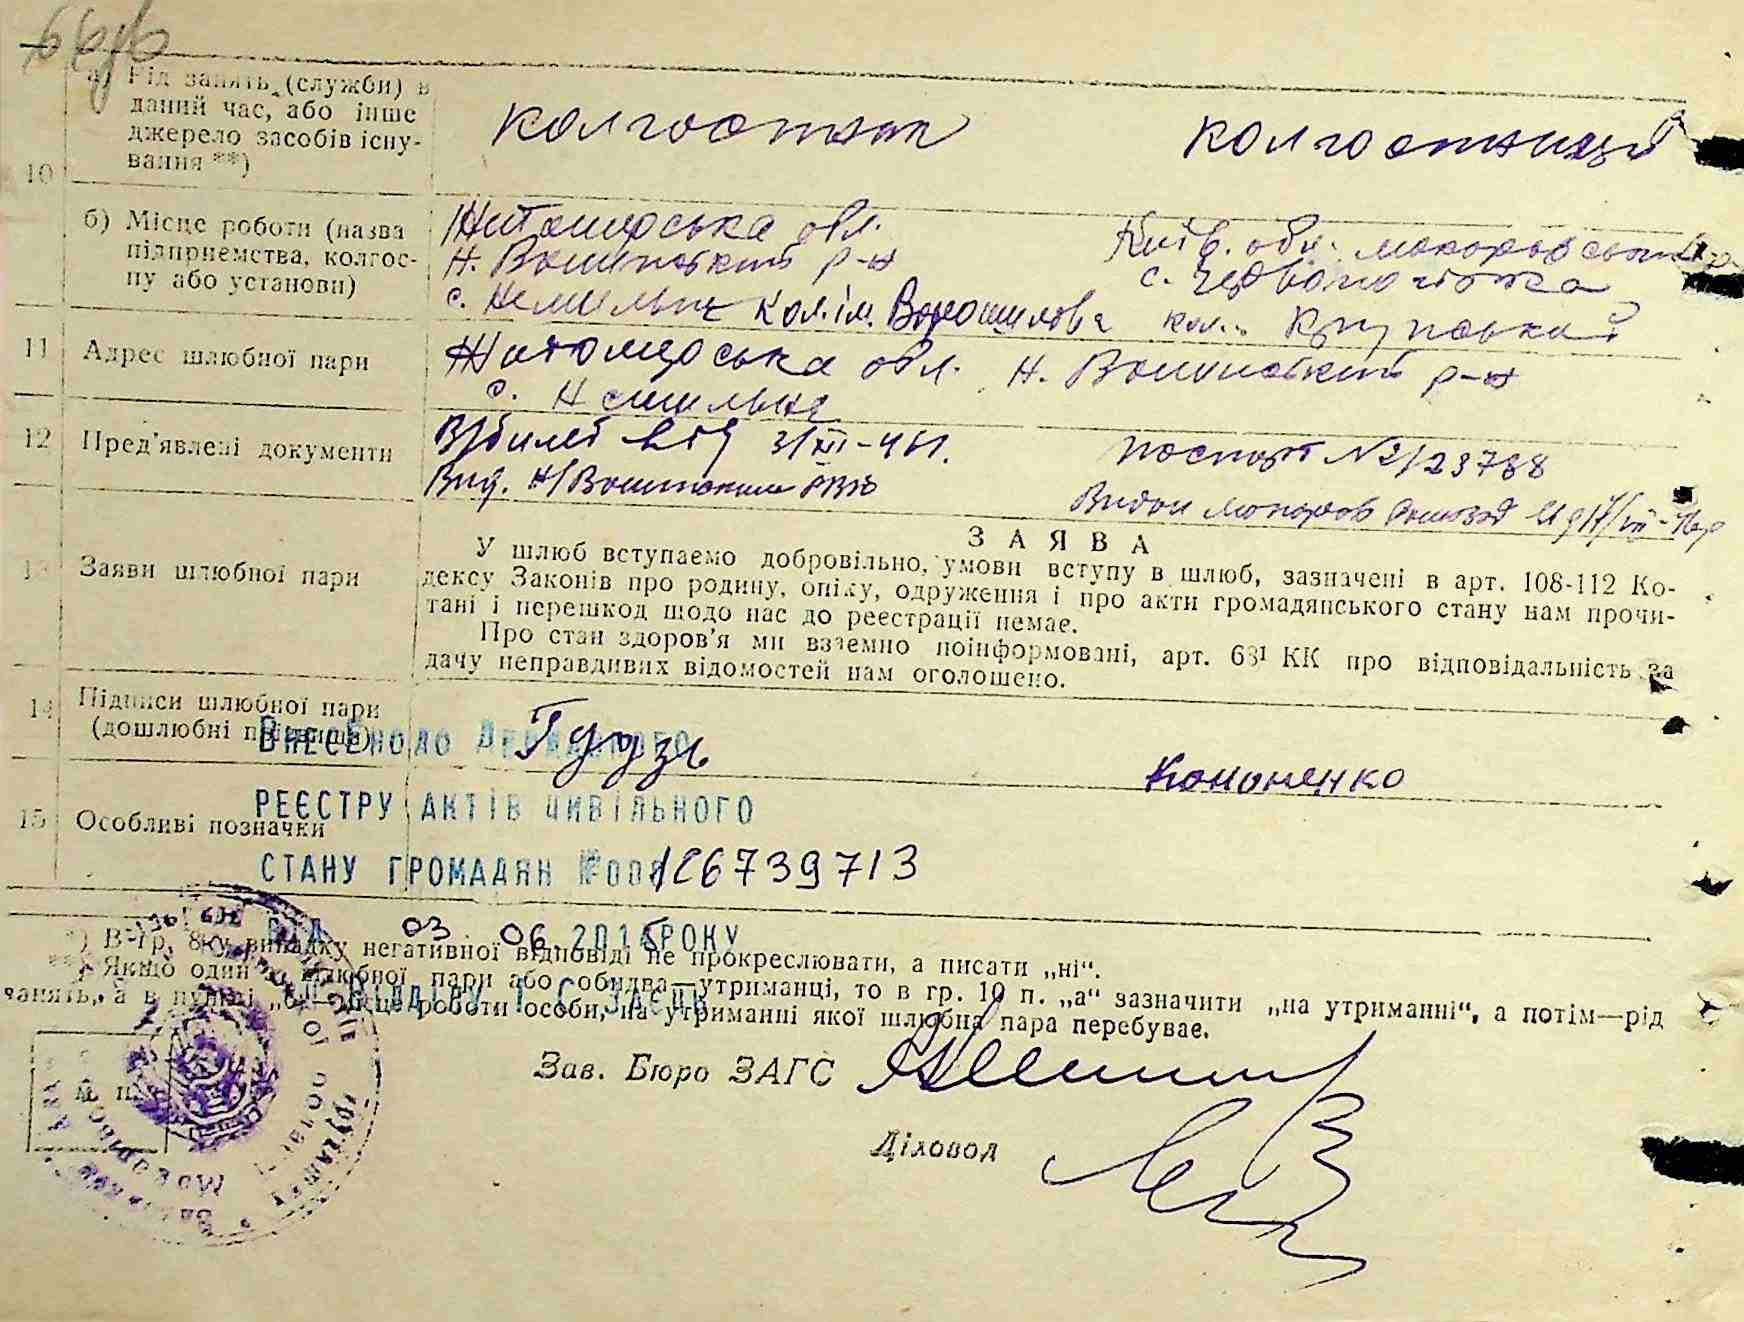 а) Рід занять (служби) в
даний час, або інше
джерело засобів існу-
вання **)
колгоспник
колгоспниця
10
б) Місце роботи (назва
підприємства, колгос-
пу або установи)
Житомирська обл.
Н. Волинський р-н
с. Немильня кол. ім. Ворошилова
Київ. обл. Макаровський
с. Червона гірка
кол. Крупської
11 Адрес шлюбної пари
Житомирська обл. Н. Волинський р-н
с. Немильня
12 Пред'явлені документи
В/билет від 31/XII-46.
Вид. Н/Волинським РВК
паспорт № 2/23788
Видан Макаров
13 Заяви шлюбної пари
ЗАЯВА
У шлюб вступаємо добровільно, умови вступу в шлюб, зазначені в арт. 108-112 Ко-
дексу Законів про родину, опіку, одруження і про акти громадянського стану нам прочи-
тані і перешкод щодо нас до реєстрації немає.
Про стан здоров'я ми взаємно поінформовані, арт. 68¹ КК про відповідальність за
дачу неправдивих відомостей нам оголошено.
14 Підписи шлюбної пари
(дошлюбні прізвища)
Гудзь
Кононенко
ВНЕСЕНО ДО ДЕРЖАВНОГО
РЕЄСТРУ АКТІВ ЦИВІЛЬНОГО
15 Особливі позначки
СТАНУ ГРОМАДЯН №00126739713
ВІД 03. 06. 2016 РОКУ
*) В гр. 8 у випадку негативної відповіді не прокреслювати, а писати „ні“.
**) Якщо один з шлюбної пари або обидва—утриманці, то в гр. 10 п. „а“ зазначити „на утриманні“, а потім—рід
занять, а в пункті „б“—місце роботи особи, на утриманні якої шлюбна пара перебуває.
Зав. Бюро ЗАГС
М. П.
Діловод